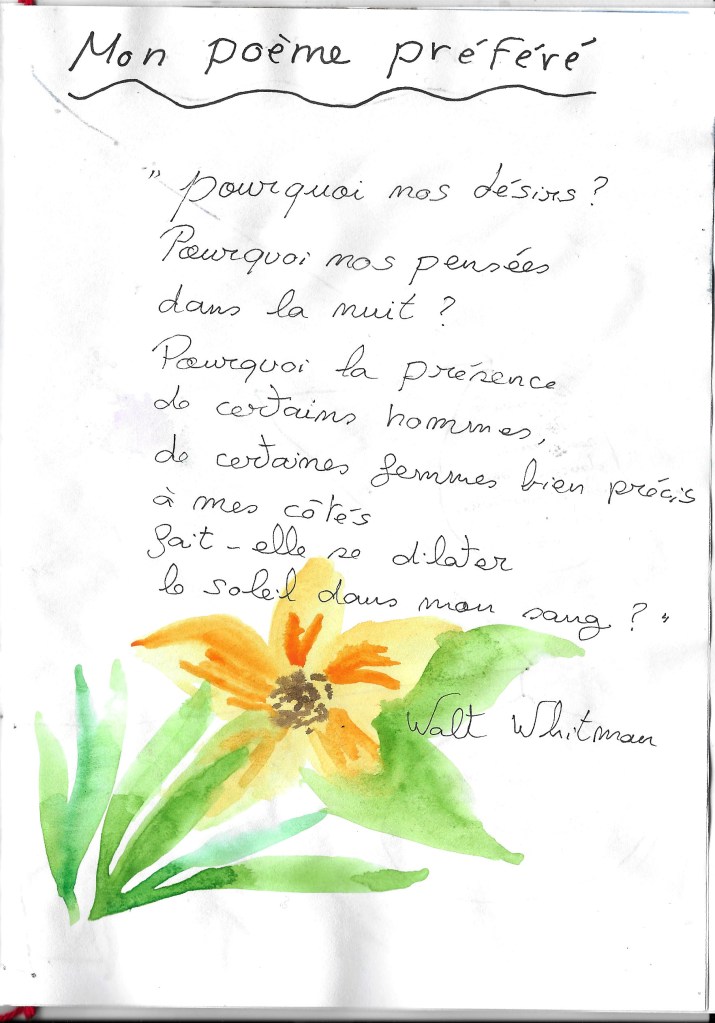 Mon poème préféré
" pourquoi nos désirs ?
Pourquoi nos pensées
dans la nuit ?
Pourquoi la présence
de certains hommes,
de certaines femmes bien précis
à mes côtés
fait-elle se dilater
le soleil dans mon sang ? "
Walt Whitman